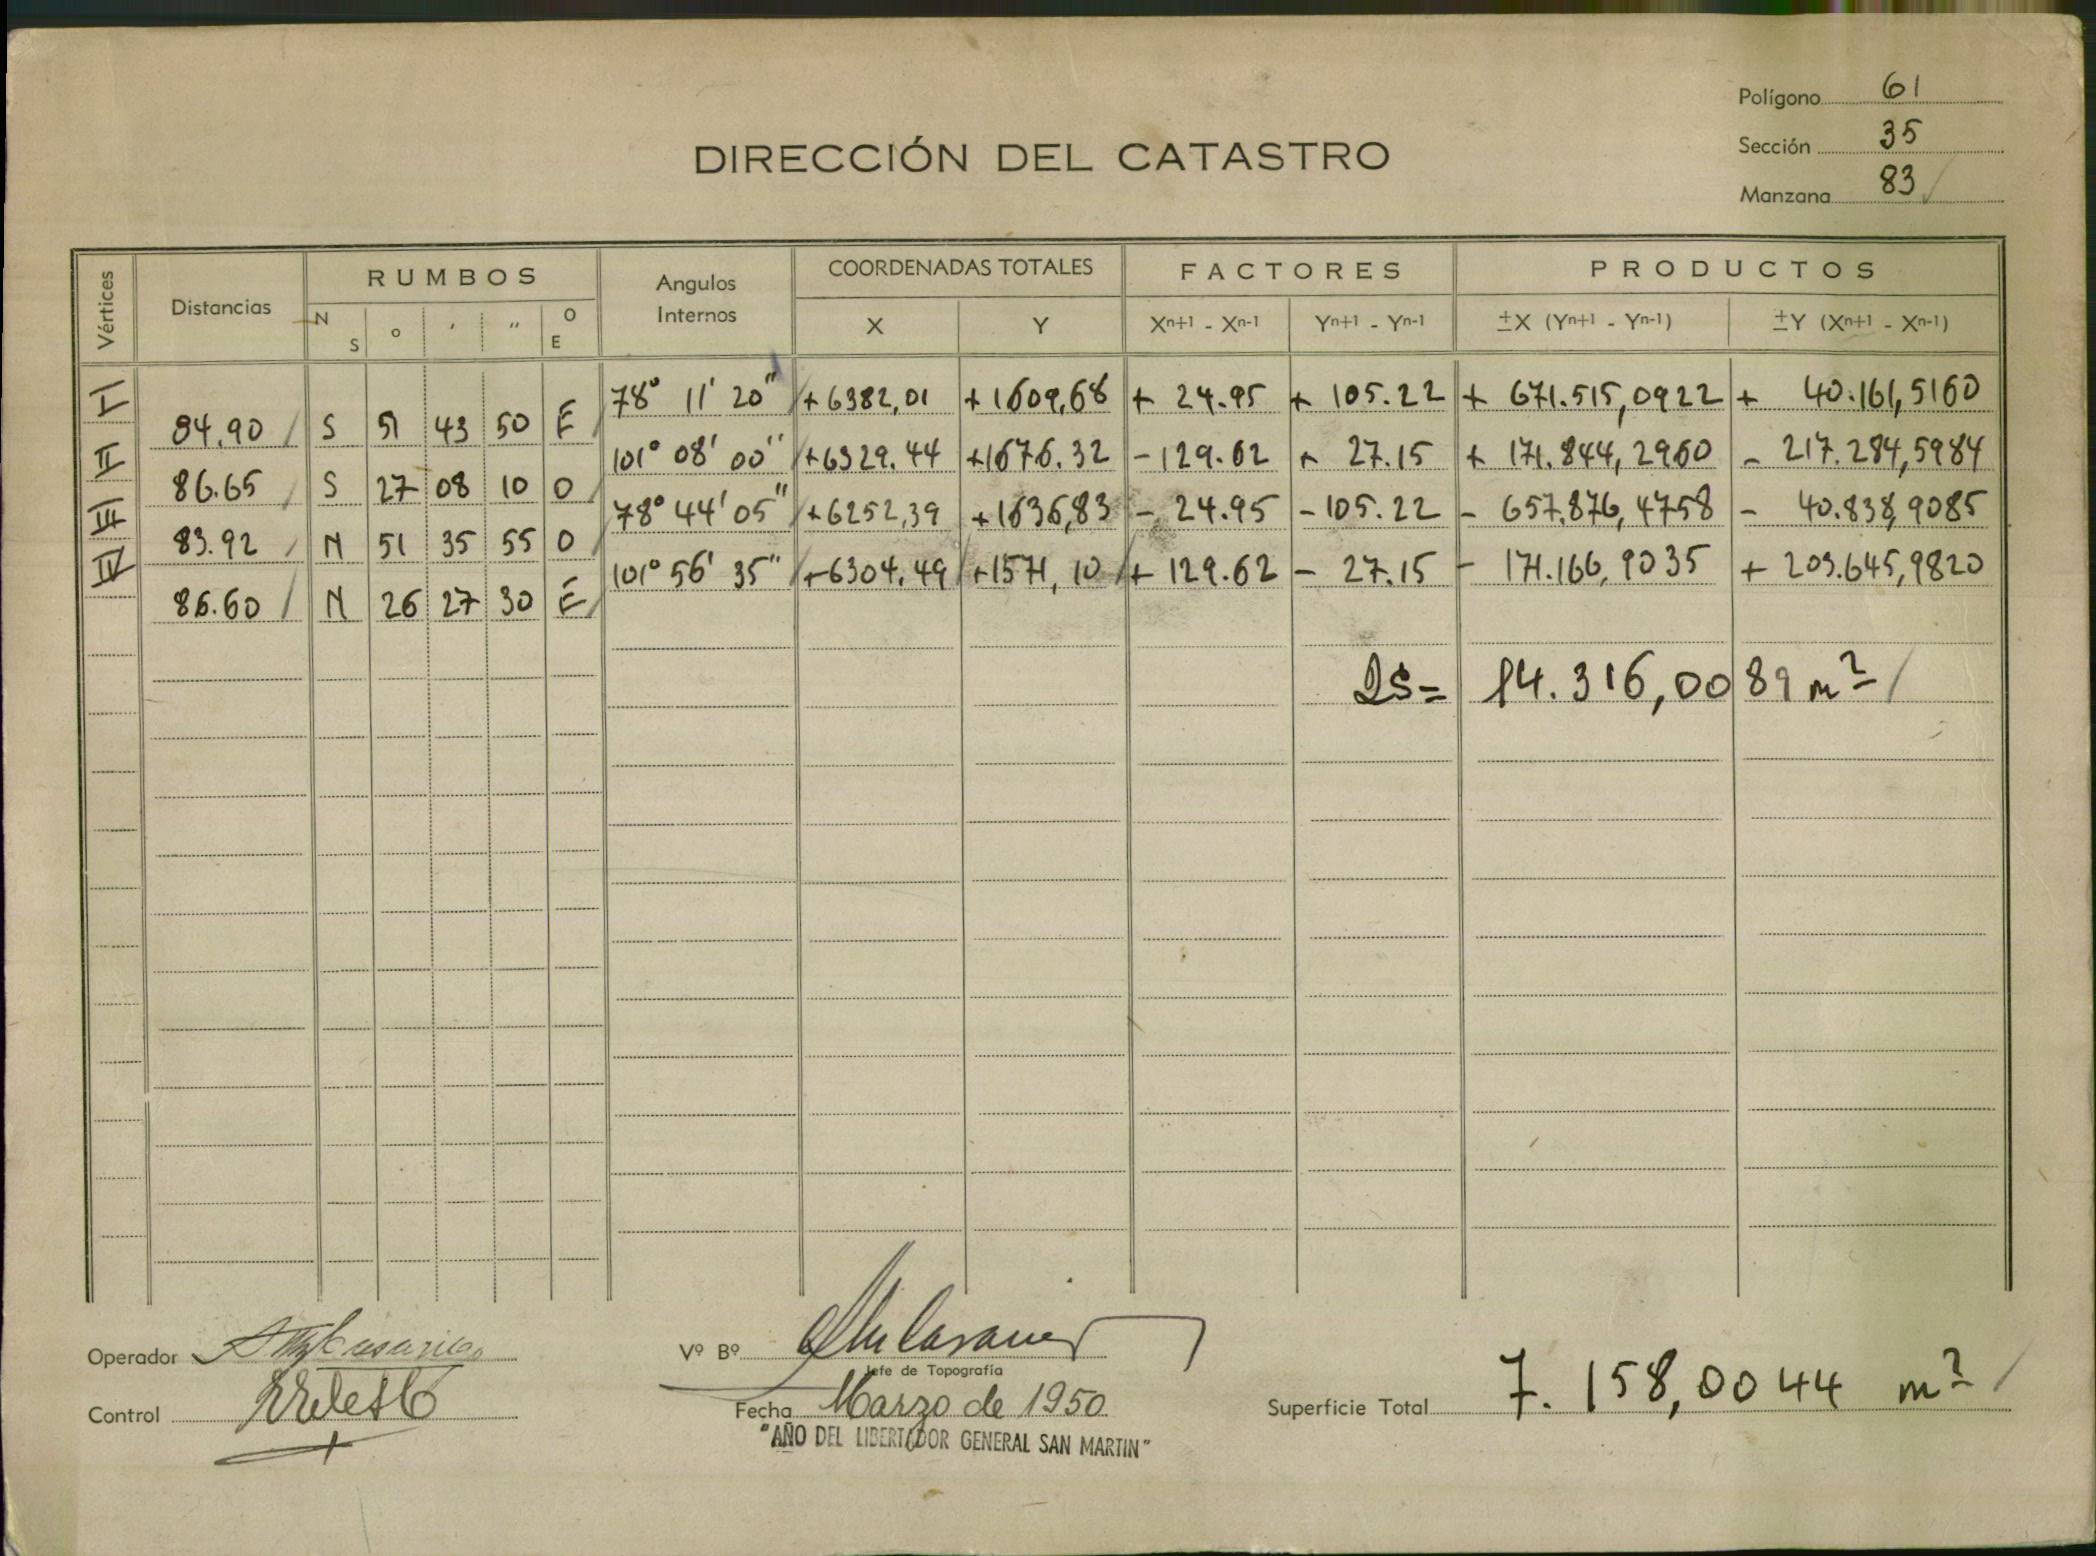 Polígono 61
Sección 35
Manzana 83
DIRECCIÓN DEL CATASTRO
Vértices Distancias RUMBOS Angulos Internos COORDENADAS TOTALES FACTORES PRODUCTOS
N S ° ' " O E X Y Xn+1 - Xn-1 Yn+1 - Yn-1 ±X (Yn+1 - Yn-1) ±Y (Xn+1 - Xn-1)
I 78° 11' 20" +6382,01 +1609,68 + 24.95 + 105.22 + 671.515,0922 + 40.161,5160
84.90 S 51 43 50 E
II 101° 08' 00" +6329.44 +1676.32 -129.62 + 27.15 + 171.844,2960 - 217.284,5984
86.65 S 27 08 10 O
III 78° 44' 05" +6252,39 +1636,83 - 24.95 -105.22 - 657.876,4758 - 40.838,9085
83.92 N 51 35 55 O
IV 101° 56' 35" +6304.49 +1571,10 + 129.62 - 27.15 - 171.166,9035 + 203.645,9820
86.60 N 26 27 30 E
2S= 14.316,0089 m²
Operador
Vº Bº
Jefe de Topografía
Control
Fecha Marzo de 1950
"AÑO DEL LIBERTADOR GENERAL SAN MARTIN"
Superficie Total 7.158,0044 m²